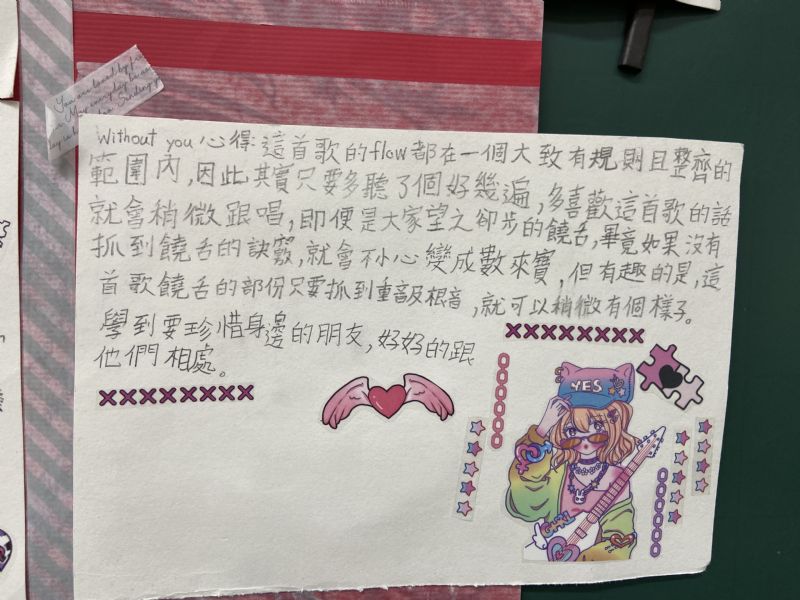 You are loved by
May every day be
Sending
without you 心得:這首歌的flow都在一個大致有規則且整齊的
範圍內,因此其實只要多聽了個好幾遍,多喜歡這首歌的話
就會稍微跟唱,即便是大家望之卻步的饒舌,畢竟如果沒有
抓到饒舌的訣竅,就會不小心變成數來寶,但有趣的是,這
首歌饒舌的部份只要抓到重音及根音,就可以稍微有個樣子。
學到要珍惜身邊的朋友,好好的跟
他們相處。
YES
GIRL